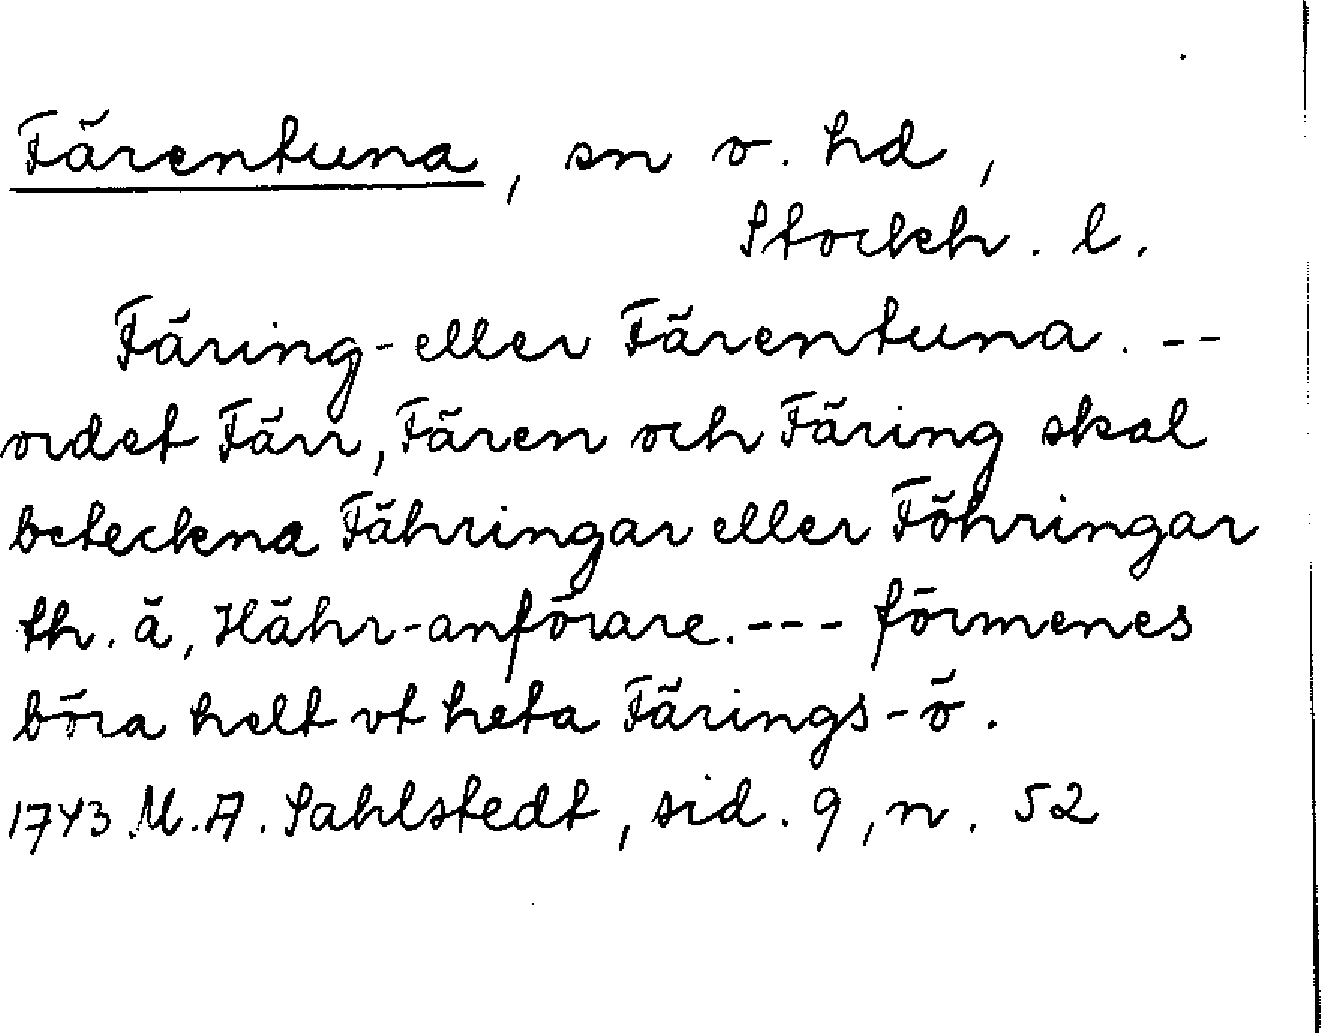 Färentuna, sn o. hd,
Stockh. l.
Färing- eller Färentuna. --
ordet Färr, Fären och Färing skal
beteckna Fähringar eller Föhringar
th. ä, Hähr-anförare. --- förmenes
böra helt vt heta Färings-ö.
1743 M. A. Sahlstedt, sid. 9, n. 52